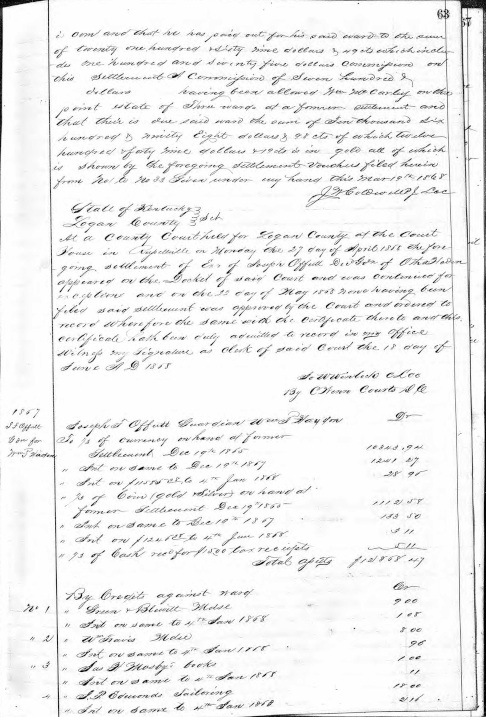 63
is com and that he has paid out for his said ward to the sum
of twenty one hundred & sixty nine dollars & 49 cts which inclu
des one hundred and seventy five dollars commission on
this settlement A Commission of Seven hundred &
dollars having been allowed Wm McCarley on the
joint estate of Three wards at a former settlement and
that there is due said ward the sum of Ten thousand six
hundred & ninety Eight dollars & 98 cts of which twelve
hundred & forty nine dollars & 19 cts is in gold all of which
is shown by the foregoing settlement Vouchers filed herein
from No 1 to No 33 Given under my hand this Mar 19th 1868
State of Kentucky
Logan County Sct
At a County Court held for Logan County at the Court
House in Russellville on Monday the 27 day of April 1868 the fore
going settlement of Exr of Joseph Offutt Decd Gdn of
appeared on the Docket of said Court and was continued for
exceptions and on the 25 day of May 1868 none having been
filed said settlement was approved by the Court and ordered to
record Wherefore the same with the certificate thereto and this
certificate hath been duly admitted to record in my office
Witness my signature as clerk of said Court the 18 day of
June A.D 1868
By
1867
J T Offutt
Exr for
Wm S Haydon
Joseph T Offutt Guardian Wm S Haydon Dr
To 1/3 of currency on hand at former
Settlement Dec 19th 1865 10343.94
" Int on same to Dec 19th 1867 1241 27
" Int on to 4th Jan 1868 28 96
" 1/3 of Coin (gold & Silver) on hand at
former Settlement Dec 19th 1865 1112 58
" Int on same to Dec 19th 1867 133 50
" Int on to 4th Jan 1868 3 11
" 1/3 of Cash recd for $1500 tax receipts 5 11
Total assets $12868 47
By Credits against ward Cr
No 1 " Green & Blewitt Mdse 9 00
" Int on same to 4th Jan 1868 1 08
" 2 " Wm Travis Mdse 8 00
" Int on same to 4th Jan 1868 96
" 3 " Jas H Mosby's books 1 00
" Int on same to 4th Jan 1868 11
4 " J.P. Edmonds Tailoring 18 00
" Int on same to 4th Jan 1868 2 16